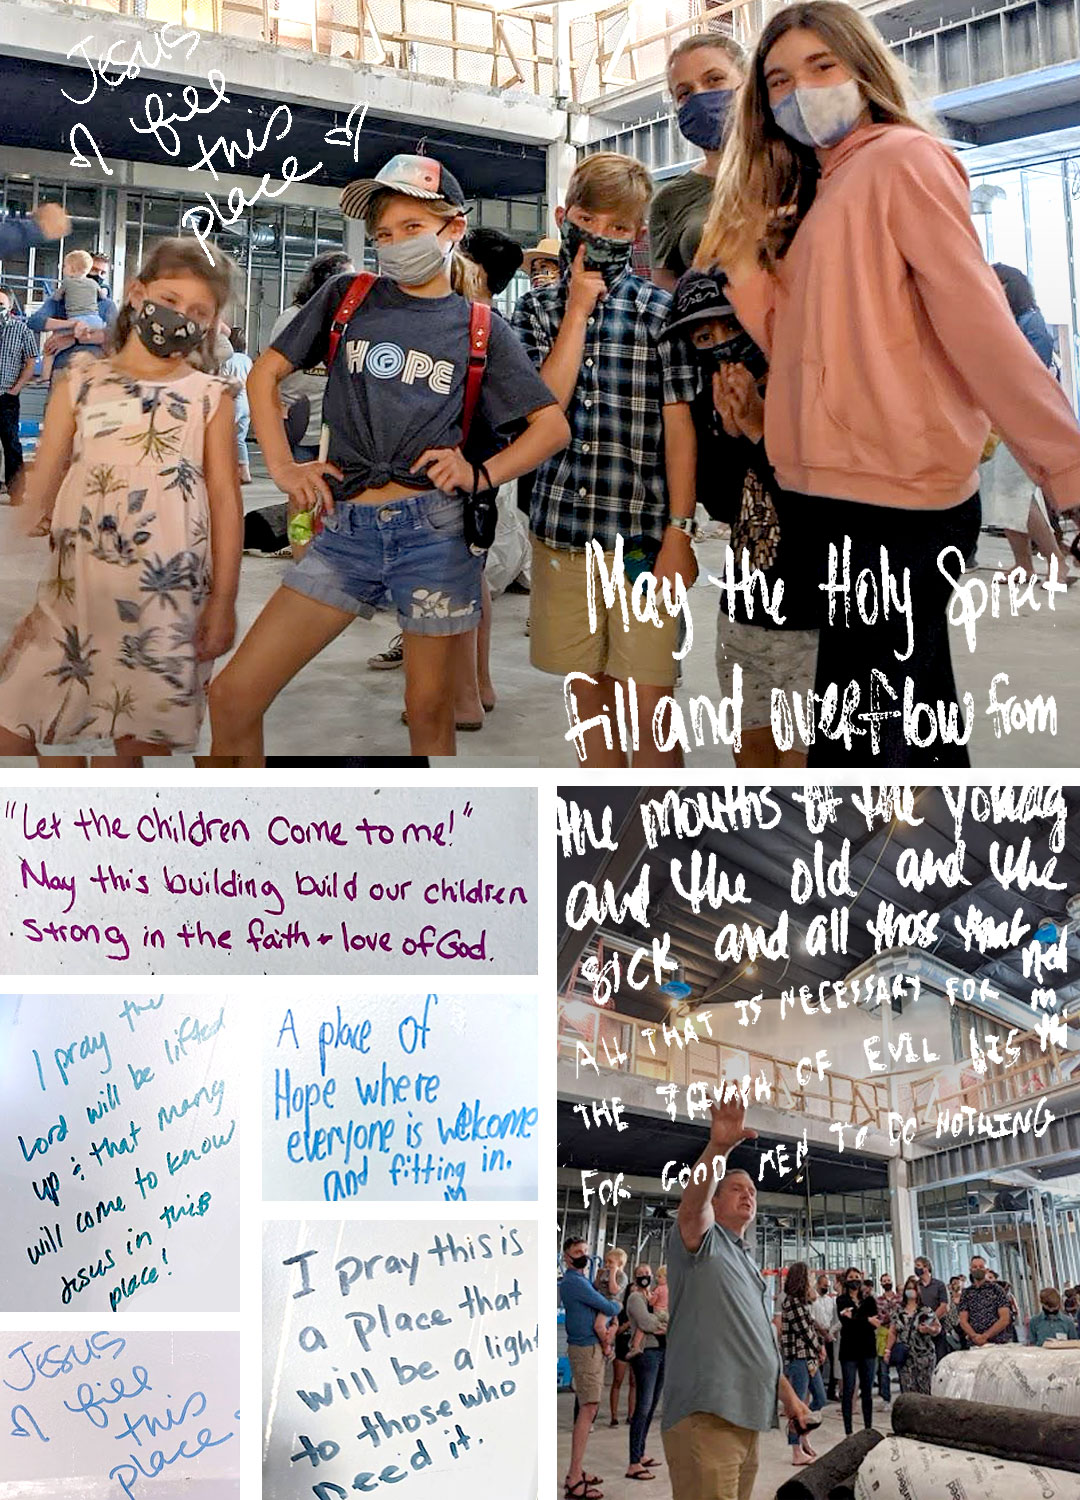 Jesus
fill
this
place
HOPE
May the Holy Spirit
fill and overflow from
the mouths of the young
and the old and the
sick and all those that
need
ALL THAT IS NECESSARY FOR
THE TRIUMPH OF EVIL IS
FOR GOOD MEN TO DO NOTHING
"Let the children come to me!"
May this building build our children
strong in the faith + love of God.
I pray the
Lord will be lifted
up & that many
will come to know
Jesus in this
place!
A place of
Hope where
everyone is welcome
and fitting in.
Jesus
fill
this
place
I pray this is
a place that
will be a light
to those who
need it.